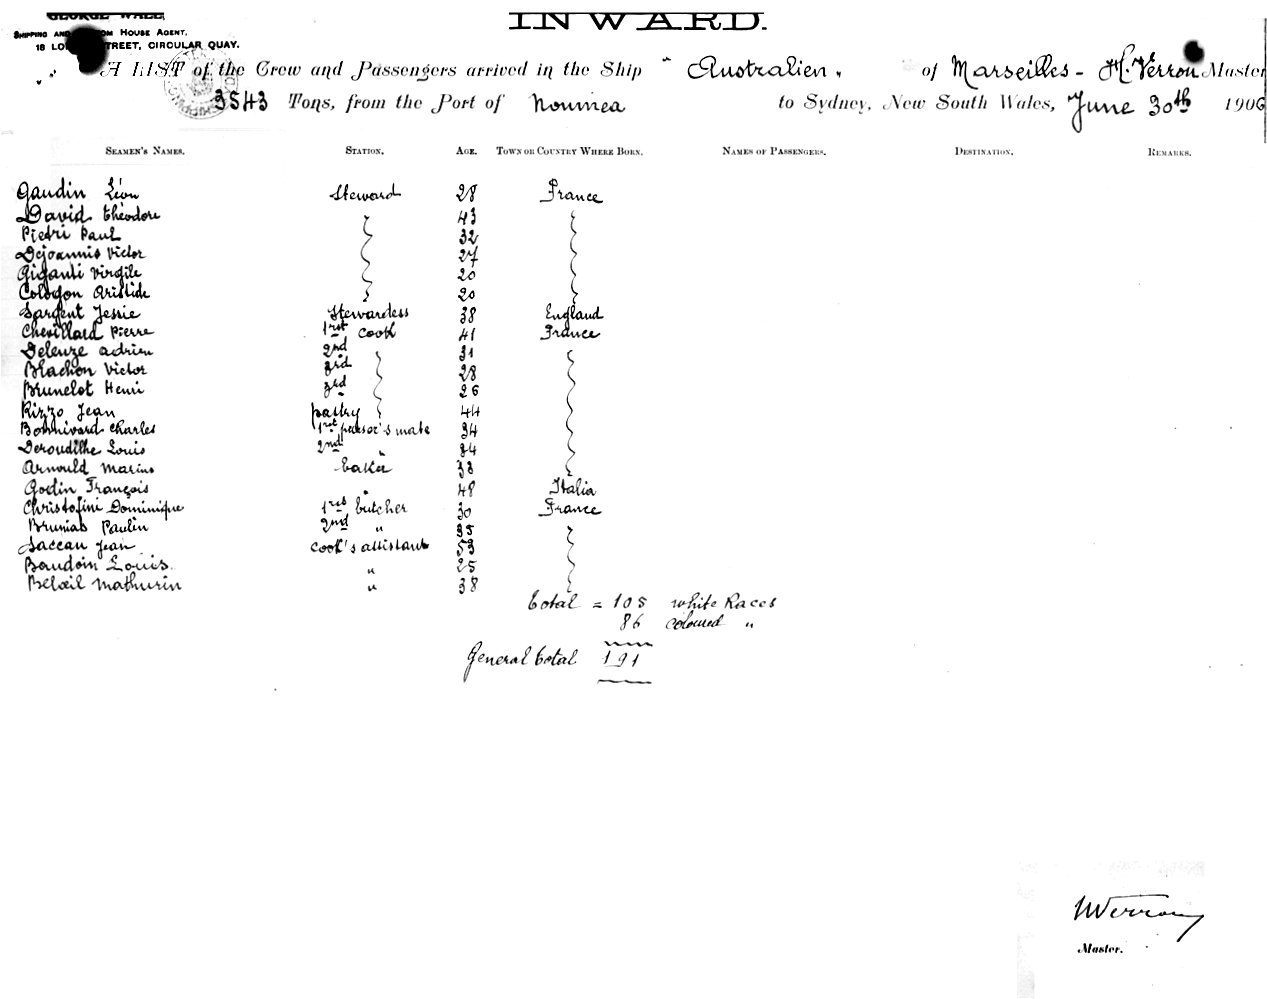 GEORGE WALL,
INWARD.
SHIPPING AND HOUSE AGENT,
18 STREET, CIRCULAR QUAY.
A LIST of the Crew and Passengers arrived in the Ship "Australien" of Marseilles - H. Verron Master
3543 Tons, from the Port of Noumea to Sydney, New South Wales, June 30th 1906
SEAMEN'S NAMES. STATION. AGE. TOWN OR COUNTRY WHERE BORN. NAMES OF PASSENGERS. DESTINATION. REMARKS.
Gaudin Léon Steward 28 France
David théodore 43
Pietri Paul 32
Dejoannis Victor 27
Giganti Virgile 20
Cologon Aristide 20
Sargent Jessie Stewardess 38 England
Chevillard Pierre 1rst cook 41 France
Deleuze adrien 2nd 31
Blachon Victor 3rd 28
Brunelot Henri 3rd 26
Rizzo Jean pastry 44
Bonnivard Charles 1rst pursor's mate 34
Deroudilhe Louis 2nd " 24
Arnould Marius baker 38
Godin François " 48 Italia
Christofini Dominique 1rst butcher 30 France
Brunias Paulin 2nd " 35
Saccau Jean cook's assistant 53
Baudoin Louis " 25
Belœil Mathurin " 38
total = 105 white Races
86 coloured "
General total 191
HVerron
Master.